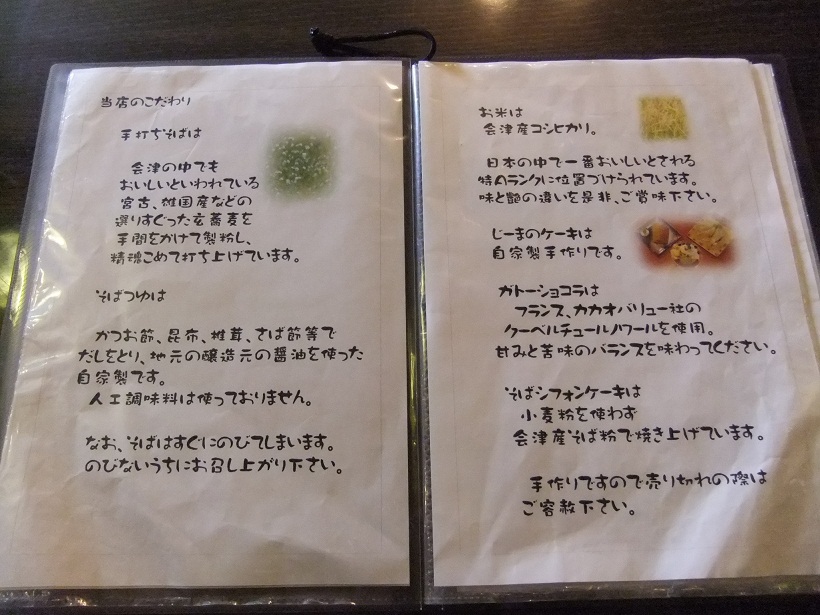 当店のこだわり
手打ちそばは
会津の中でも
おいしいといわれている
宮古、雄国産などの
選りすぐった玄蕎麦を
手間をかけて製粉し、
精魂こめて打ち上げています。
そばつゆは
かつお節、昆布、椎茸、さば節等で
だしをとり、地元の醸造元の醤油を使った
自家製です。
人工調味料は使っておりません。
なお、そばはすぐにのびてしまいます。
のびないうちにお召し上がり下さい。
お米は
会津産コシヒカリ。
日本の中で一番おいしいとされる
特Aランクに位置づけられています。
味と艶の違いを是非、ご賞味下さい。
じーまのケーキは
自家製手作りです。
ガトーショコラは
フランス、カカオバリュー社の
クーベルチュールノワールを使用。
甘みと苦味のバランスを味わってください。
そばシフォンケーキは
小麦粉を使わず
会津産そば粉で焼き上げています。
手作りですので売り切れの際は
ご容赦下さい。